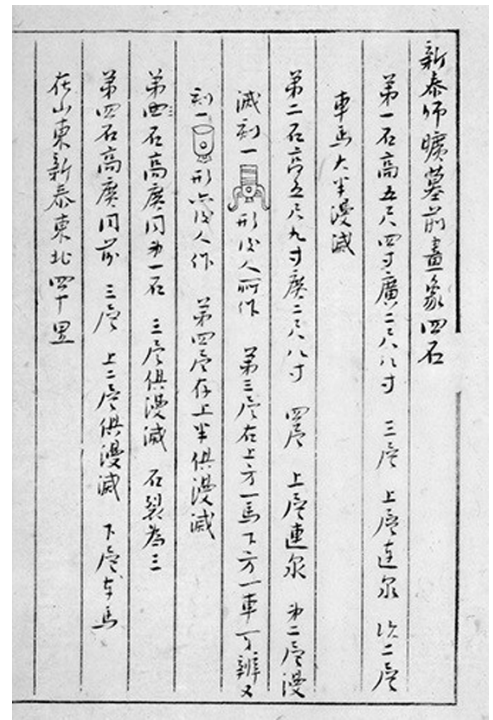 新泰師曠墓前畫象四石
第一石高五尺四寸廣二尺八寸 三層 上層連泉 次二層
車馬大半漫滅
第二石高五尺九寸廣二尺八寸 四層 上層連泉 第二層漫
滅刻一形後人所作 第三層右上方一馬下方一車可辨又
刻一形亦後人作 第四層存上半俱漫滅
第四石高廣同第一石 三層俱漫滅 石裂為三
第四石高廣同前 三層 上二層俱漫滅 下層車馬
在山東新泰東北四十里